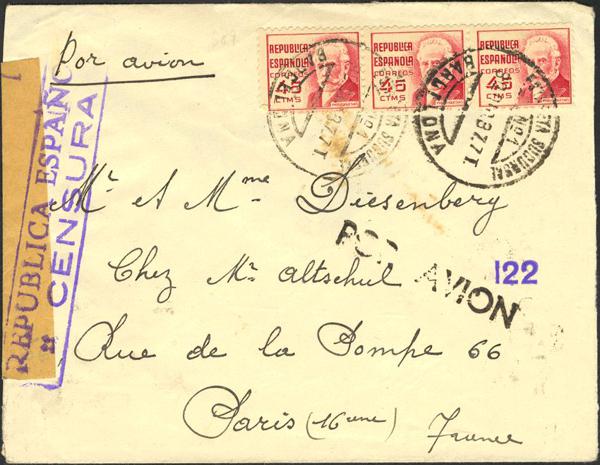 Por avion
REPUBLICA ESPAÑOLA
CORREOS
45
CTMS
REPUBLICA ESPAÑOLA
CORREOS
45
CTMS
REPUBLICA ESPAÑOLA
CORREOS
45
CTMS
BARCELONA
REPUBLICA ESPAÑO
CENSURA
Mr et Mme Diesenberg
POR AVION
122
Chez Mr Altschul
Rue de la Pompe 66
Paris (16eme) France